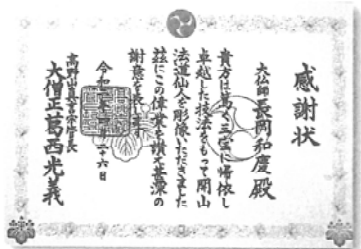 感謝状
大仏師 長岡和慶殿
貴方は篤く三宝に帰依し
卓越した技法をもって開山
法道仙人を彫像いただきました
茲にこの偉業を讃え甚深の
謝意を表します
令和 年 月 六日
高野山真言宗 長
大僧正葛西光義